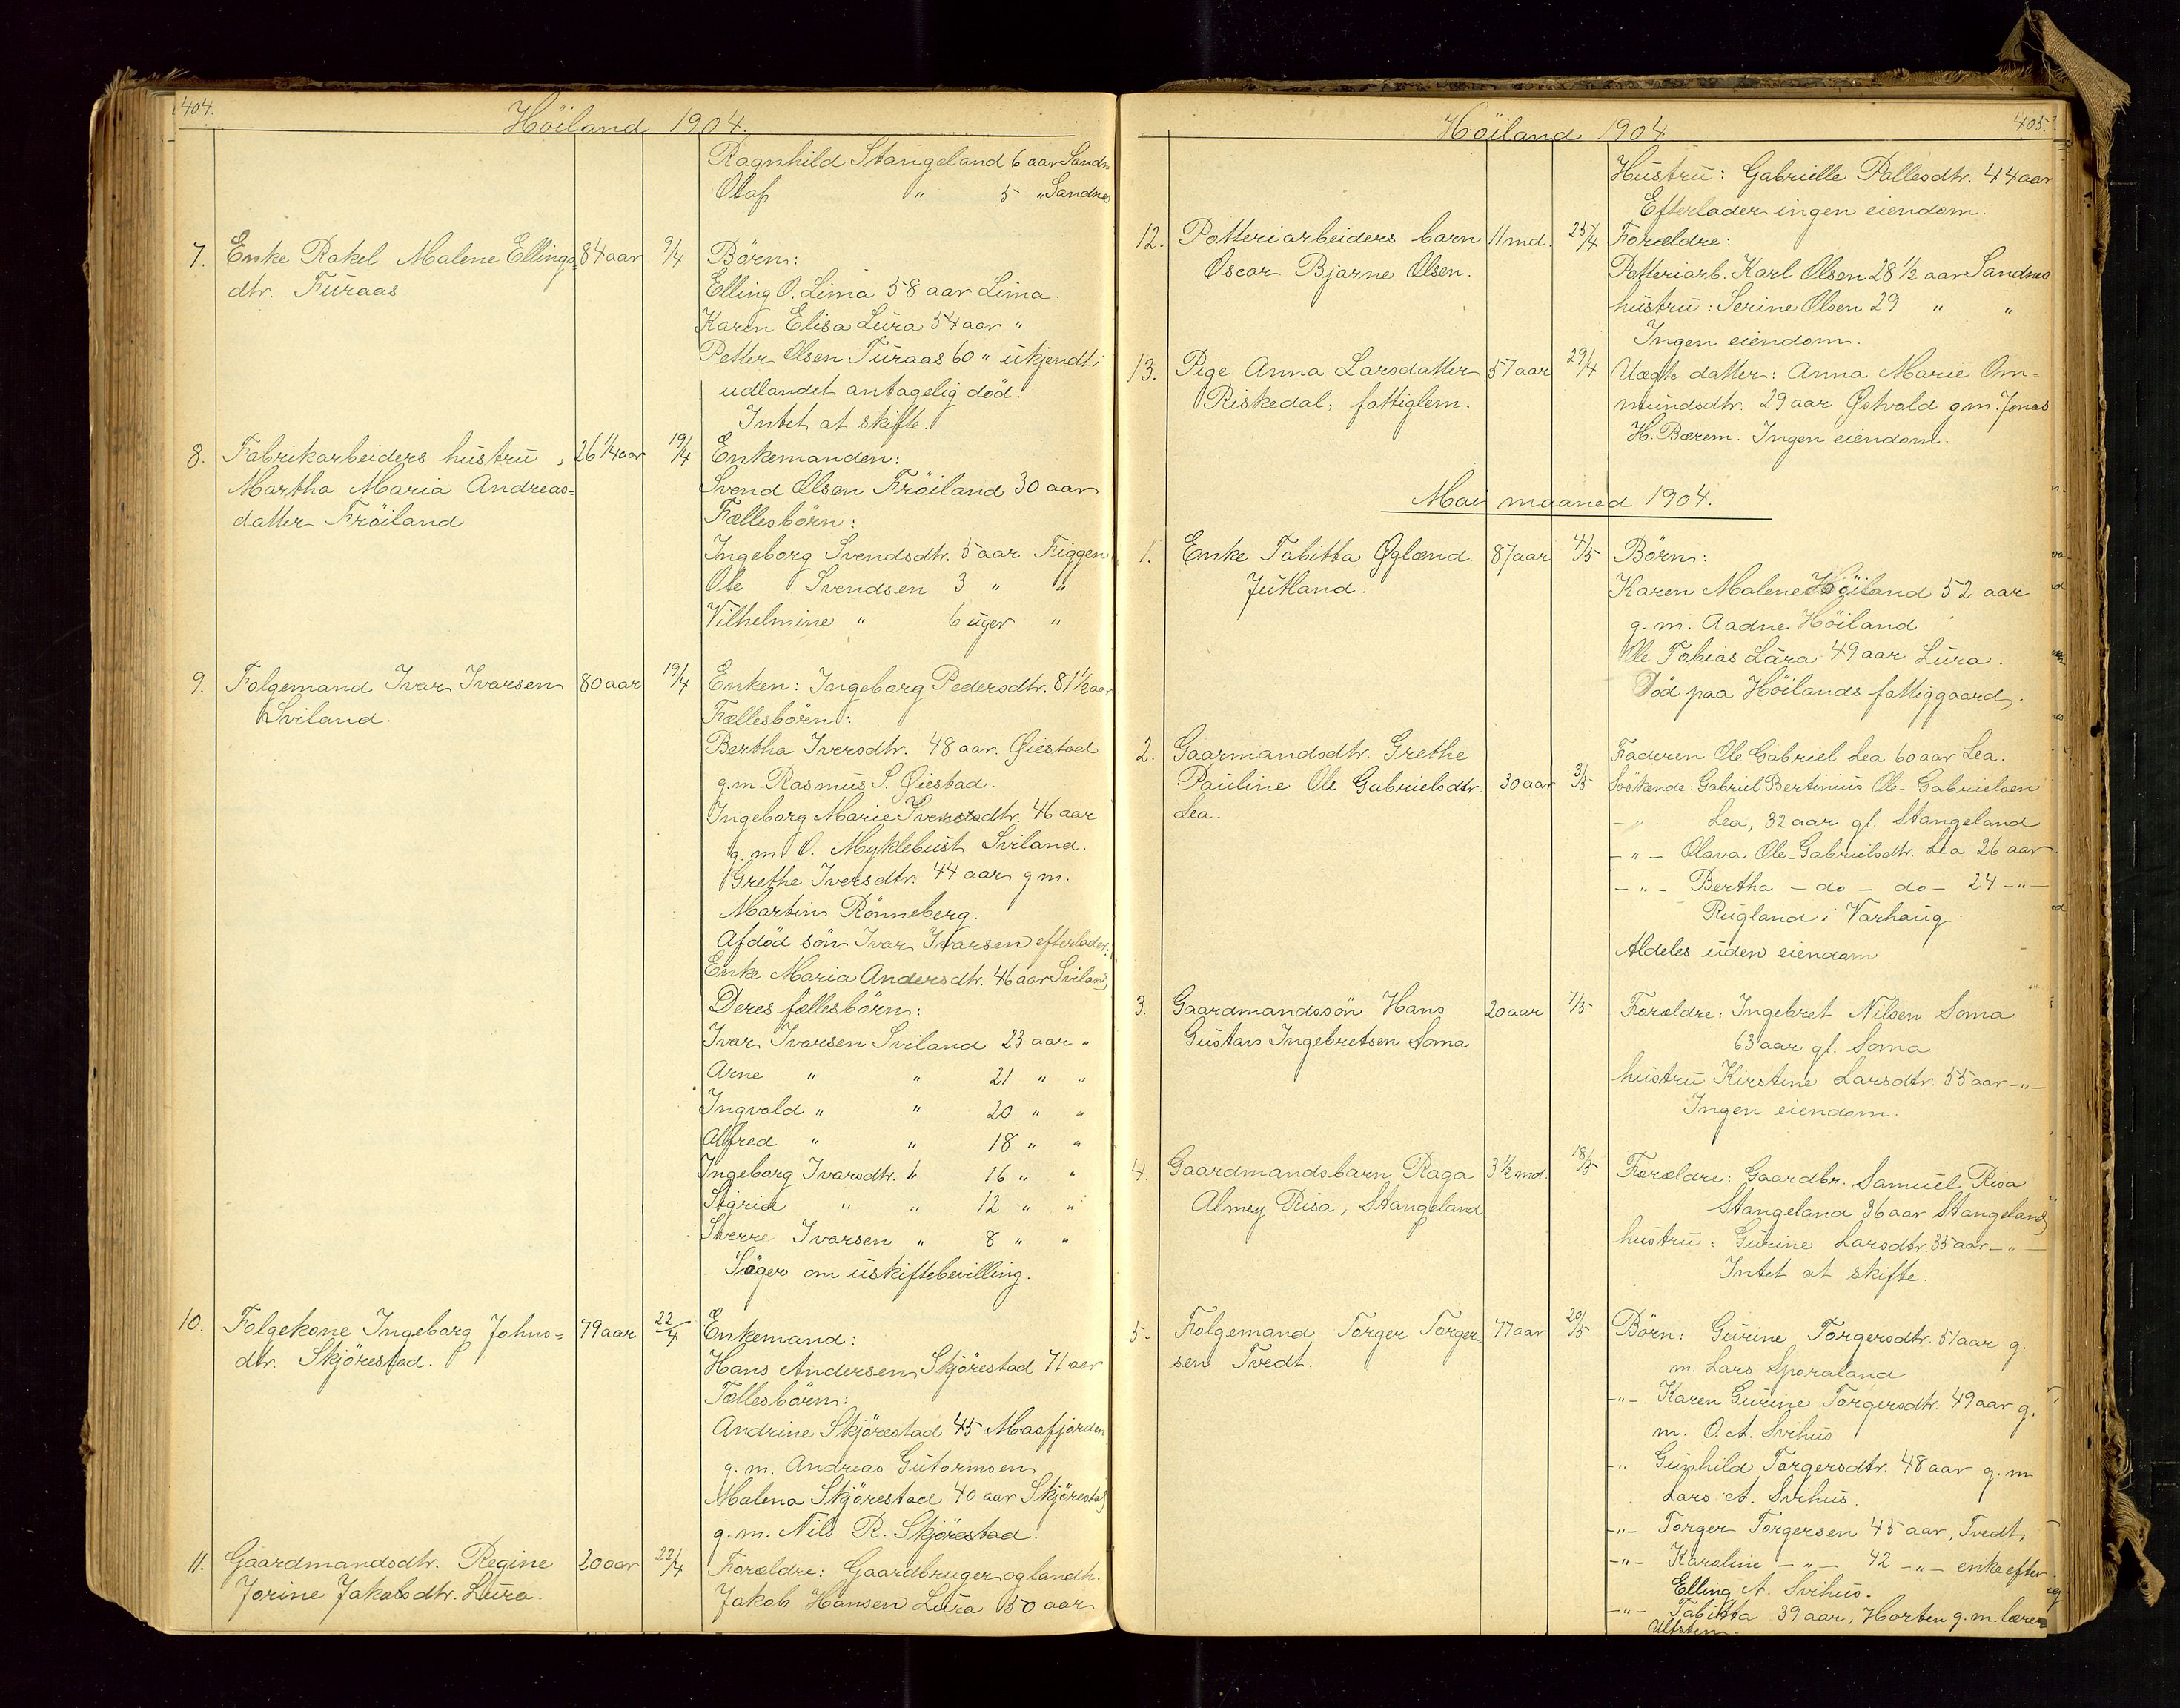 404.
Höiland 1904.
Ragnhild Stangeland 6 aar Sandn
Olaf " 5 " Sandnes
7. Enke Rakel Malene Ellings= 84 aar 9/4 Börn:
dtr. Furaas
Elling O. Lima 58 aar Lima.
Karen Elisa Lura 54 aar "
Petter Olsen Furaas 60 " ukjendt i
udlandet antagelig död.
Intet at skifte.
8. Fabrikarbeiders hustru, 26 1/4 aar 19/4 Enkemanden:
Martha Maria Andreas= Svend Olsen Fröiland 30 aar
datter Fröiland Fællesbörn:
Ingeborg Svendsdtr. 5 aar Figgen
Ole Svendsen 3 " "
Vilhelmine " 6 uger "
9. Folgemand Ivar Ivarsen 80 aar 19/4 Enken: Ingeborg Pedersdtr. 81 1/2 aar
Sviland. Fællesbörn:
Bertha Iversdtr. 48 aar. Øiestad
g.m. Rasmus S. Øiestad.
Ingeborg Marie Iversdtr. 46 aar
g.m. O. Myklebust Sviland.
Grethe Iversdtr. 44 aar g m.
Martin Rönneberg.
Afdöd sön Ivar Ivarsen efterlader:
Enke Maria Andersdtr. 46 aar Sviland
Deres fællesbörn:
Ivar Ivarsen Sviland 23 aar "
Arne " " 21 " "
Ingvald " " 20 " "
Alfred " " 18 " "
Ingeborg Ivarsdtr. " 16 " "
Sigrid " " 12 " "
Sverre Ivarsen " 8 " "
Söger om uskiftebevilling.
10. Folgekone Ingeborg Johns= 79 aar 22/4 Enkemand:
dtr. Skjörestad. Hans Andersen Skjörestad 71 aar
Fællesbörn:
Andrine Skjörestad 45 Masfjorden
g.m. Andreas Gutormsen
Malena Skjörestad 40 aar Skjörestad
g.m. Nils R. Skjörestad.
11. Gaardmandsdtr. Regine 20 aar 22/4 Forældre: Gaardbruger og landh.
Jorine Jakobsdtr. Lura. Jakob Hansen Lura 50 aar
405.
Höiland 1904
Hustru: Gabrielle Pallesdtr. 44 aar
Efterlader ingen eiendom.
12. Potteriarbeiders barn 11 md. 25/4 Forældre:
Oscar Bjarne Olsen. Potteriarb. Karl Olsen 28 1/2 aar Sandnes
hustru: Serine Olsen 29 " "
Ingen eiendom.
13. Pige Anna Larsdatter 57 aar 29/4 Uægte datter: Anna Marie Om=
Riskedal, fattiglem. mundsdtr. 29 aar Østvold g m. Jonas
H. Bærem. Ingen eiendom.
Mai maaned 1904.
1. Enke Tabitta Øglænd 87 aar 4/5 Börn:
Jutland. Karen Malene Höiland 52 aar
g. m. Aadne Höiland
Ole Tobias Lura 49 aar Lura.
Död paa Höilands fattiggaard.
2. Gaarmandsdtr. Grethe Faderen Ole Gabriel Lea 60 aar Lea.
Pauline Ole Gabrielsdtr. 30 aar 3/5 Söskende: Gabriel Bertinius Ole-Gabrielsen
Lea. - " - Lea, 32 aar gl. Stangeland
- " - Olava Ole-Gabrielsdtr. Lea 26 aar
- " - Bertha - do - do - 24 - " -
Rugland i Varhaug.
Aldeles uden eiendom
3. Gaardmandssön Hans 20 aar 7/5 Forældre: Ingebret Nilsen Soma
Gustav Ingebretsen Soma 63 aar gl. Soma
hustru Kirstine Larsdtr. 55 aar - " -
Ingen eiendom.
4. Gaardmandsbarn Raga 3 1/2 md. 18/5 Forældre: Gaardbr. Samuel Risa
Almey Risa, Stangeland Stangeland 36 aar Stangeland
hustru: Gurine Larsdtr. 35 aar - " -
Intet at skifte.
5. Folgemand Torger Torger= 77 aar 20/5 Börn: Gurine Torgersdtr. 51 aar g.
sen Tvedt. m. Lars Sporaland
- " - Karen Gurine Torgersdtr. 49 aar g.
m. O. A. Svihus
- " Gunhild Torgersdtr. 48 aar g. m
Lars A. Svihus.
- " - Torger Torgersen 45 aar, Tvedt
- " - Karoline - " - 42 - " - enke efter
Elling A. Svihus.
- " - Tabitta 39 aar, Horten g. m. lærer
Ulfsten.